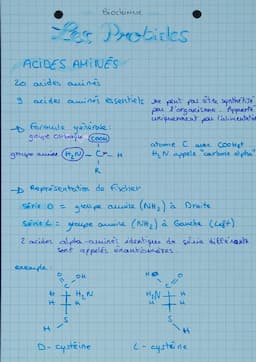 Biochimie
Les Protides
ACIDES AMINÉS
20 acides aminés
9 acides aminés essentiels
ne peut pas être synthétisé
par l'organisme. Apporté
uniquement par l'alimentation
→ Formule générale :
groupe carboxyle COOH
groupe amine H₂N - C - H
R
atome C avec COOH et
H₂N appelé "carbone alpha"
→ Représentation de Fischer
Série D = groupe amine (NH₂) à Droite
Série L = groupe amine (NH₂) à Gauche (Left)
2 acides alpha-aminés identiques de série différente
sont appelés énantiomères.
exemple :
O OH
C
H H₂N
H H
S
H
D - cystéine
HO O
C
H₂N H
H H
S
H
L - cystéine